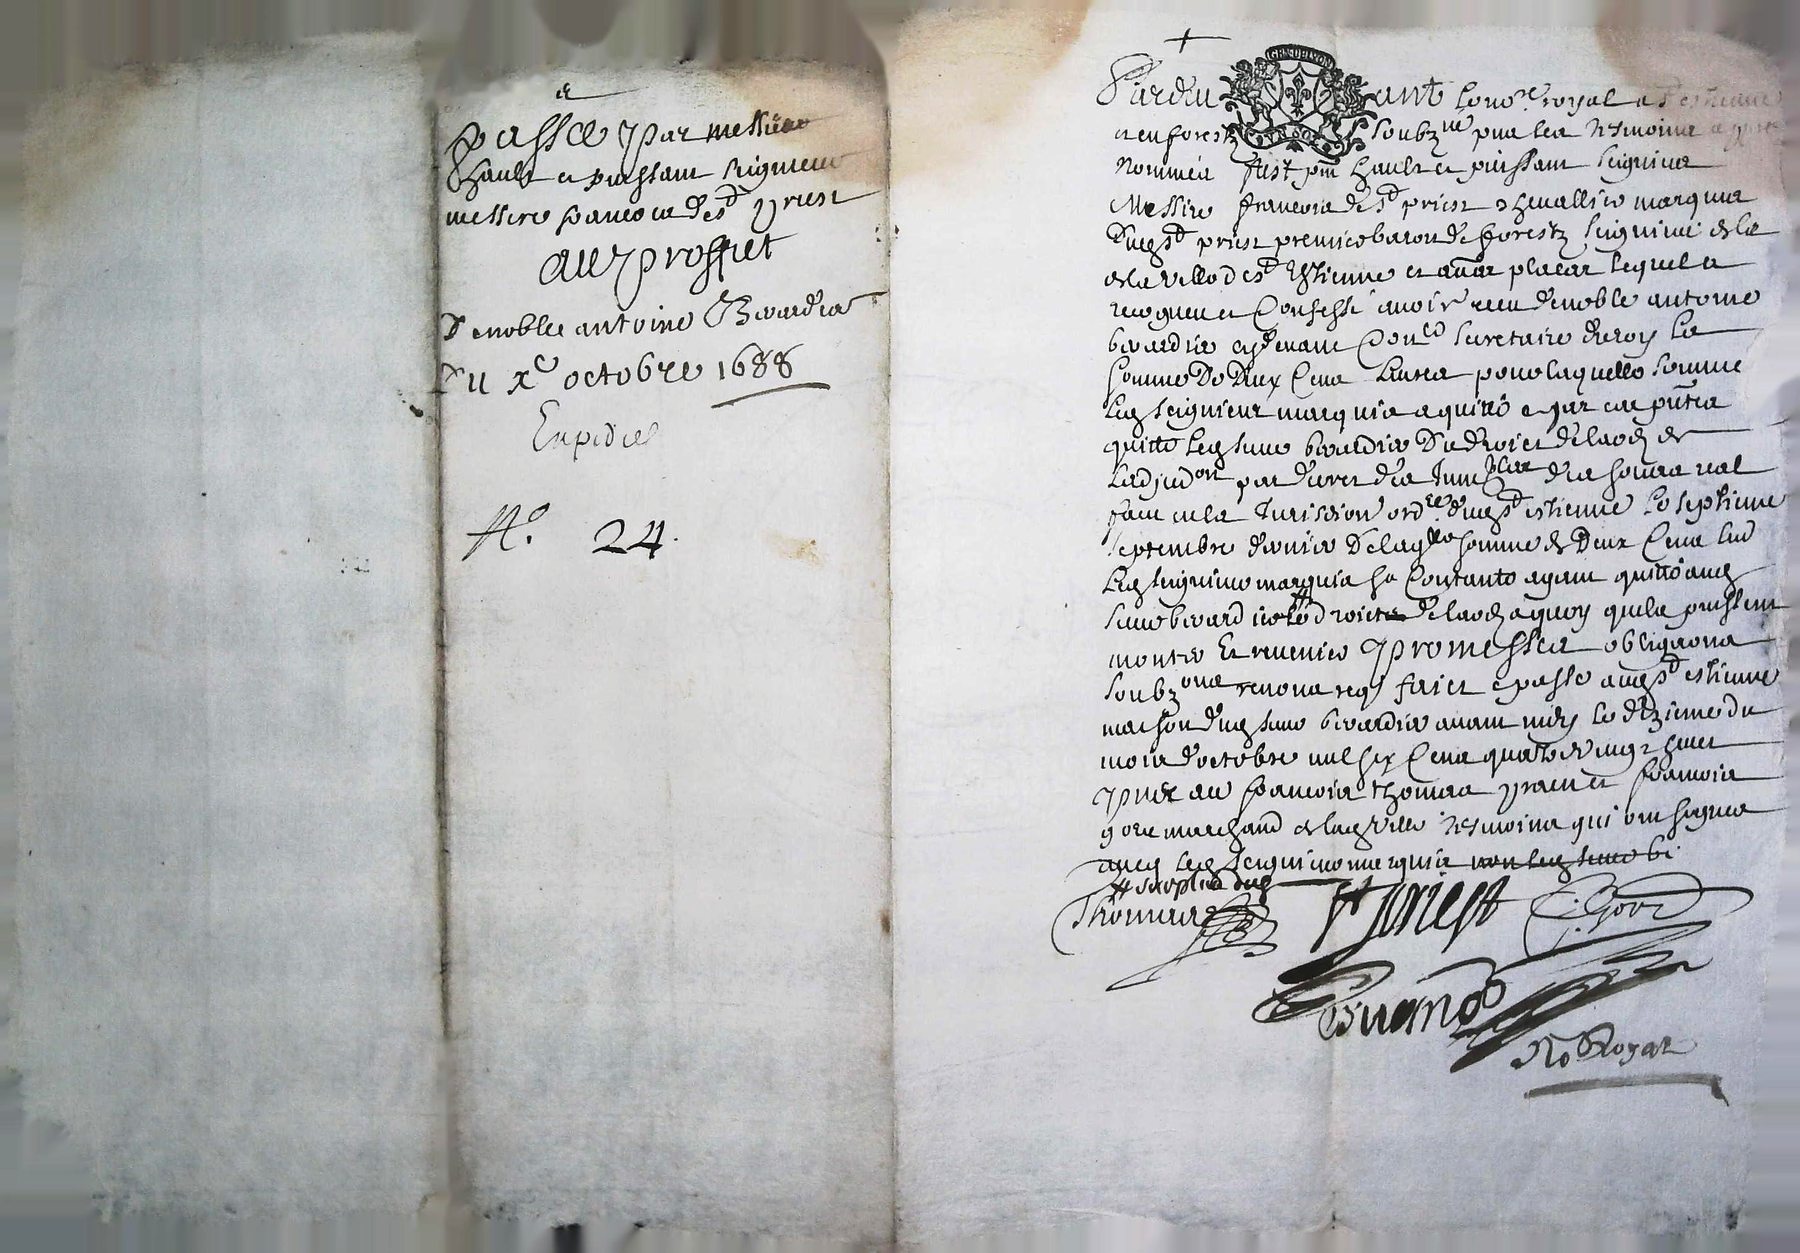 passee par messire
hault et puissant seigneur
messire francois de st priest
au proffict
De noble antoine Berardier
Du xe octobre 1688
Expediee
No. 24.
GEN DE LYON
Pardevant le nore royal a st estienne
en forestz soubzne les tesmoins
nommés fust pnt hault et puissant seigneur
Messire francois de st priest chevallier marquis
dud st priest premier baron de forestz seigneur de la
de la ville de st Estienne et autres places lequel a
recogneu et Confessé avoir receu de noble antoine
berardier cy devant Coner secretaire du roy la
somme De Deux Cens Livres pour laquelle somme
led seigneur marquis a quitté et par ces pntes
quitte led sieur berardier Du droict de laods de
Ladjudon par decret des Immbles de thomas
faict en la Jurisdion ordre dud st estienne Le septieme
septembre dernier De laqlle somme de Deux Cens
led seigneur marquis se Contante ayant quitté aud
sieur berardier led droict de laods a quoy quil puissent
monter Et revenir promesses obligaons
soubzons renons req faict et passé aud st estienne
maison dud sieur berardier avant midy le dixieme du
mois doctobre mil six Cens quatre vingt huict
pnt au francois thomas et francois
gore marchand de lad ville tesmoins qui ont signés
avec led seigneur marquis non led sieur be
# surplus dud
Thomas
St priest
f. Gore
No Royal